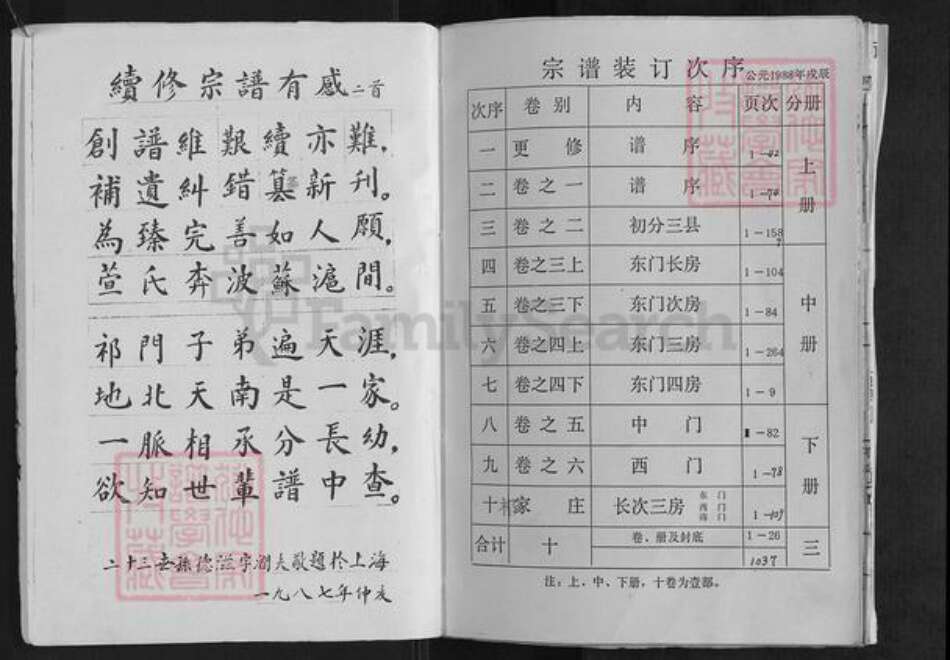 續修宗譜有感二首
創譜維艱續亦難，
補遺糾錯纂新刊。
為臻完善如人願，
萱氏奔波蘇滬間。
祁門子弟遍天涯，
地北天南是一家。
一脈相承分長幼，
欲知世輩譜中查。
二十三世孫德 字 夫敬題於上海
一九八七年仲夏
宗谱装订次序 公元1988年戊辰
次序 卷别 内容 页次 分册
一 更修 谱序 1-42 上册
二 卷之一 谱序 1-70
三 卷之二 初分三县 1-158
四 卷之三上 东门长房 1-104 中册
五 卷之三下 东门次房 1-84
六 卷之四上 东门三房 1-264
七 卷之四下 东门四房 1-9
八 卷之五 中门 1-82 下册
九 卷之六 西门 1-78
十 家庄 长次三房 东门 西门 南门 1-109
合计 十 卷、册及封底 1-26 三
1037
注：上、中、下册，十卷为壹部。
FamilySearch